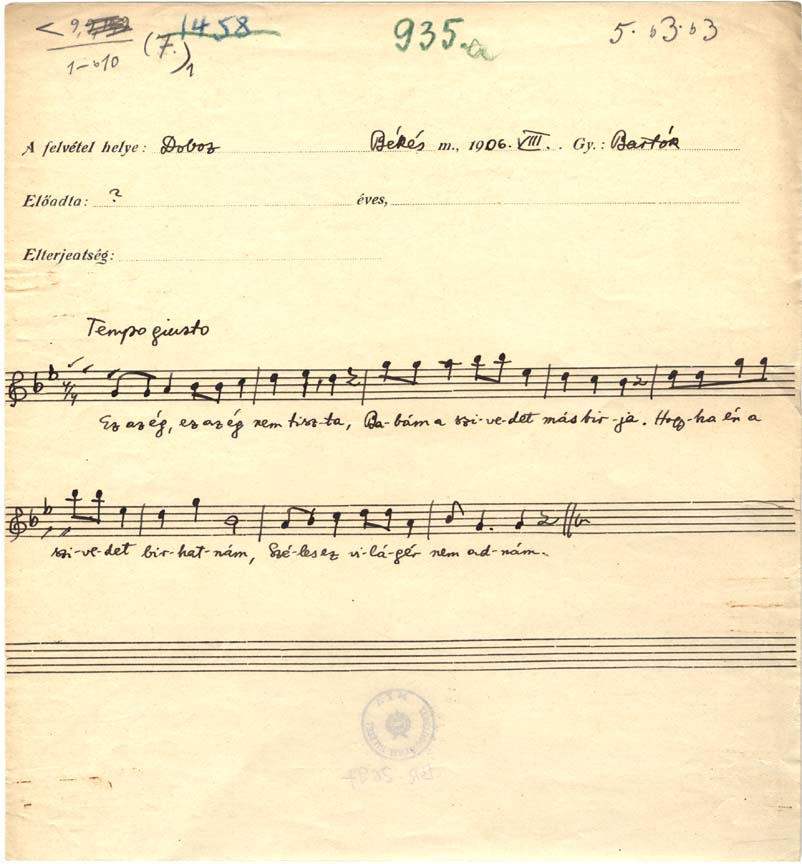 < 9, 1458 935.a 5. b3. b3
1-b10 (F.)1
A felvétel helye: Doboz Békés m., 1906. VIII. Gy.: Bartók
Előadta: ? éves,
Elterjedtség:
Tempo giusto
4/4
Ez az ég, ez az ég nem tisz-ta, Ba-bám a szi-ve-det más bir-ja. Hogy-ha én a
szi-ve-det bir-hat-nám, Szé-les ez vi-lá-gér nem ad-nám.